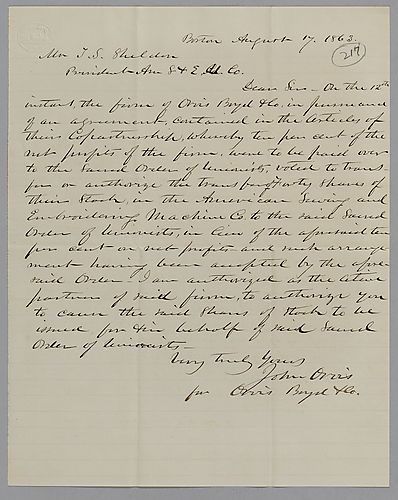 Boston August 17. 1863.
217
Mr T. S. Sheldon
President Am S & E. M. Co.
Dear Sir – On the 12th
instant, the firm of Orvis Boyd & Co, in pursuance
of an agreement, contained in the Articles of
their Copartnership, whereby ten per cent of the
net profits of the firm, were to be paid over
to the Sacred Order of Unionists, voted to trans-
fer or authorize the transfer of Forty Shares of
their Stock, in the American Sewing and
Embroidering Machine Co. to the said Sacred
Order of Unionists, in lieu of the aforesaid ten
per cent on net profits and such arrange
ment having been accepted by the afore
said Order – I am authorized as the active
partner of said firm, to authorize you
to cause the said Shares of Stock to be
issued for & in behalf of said Sacred
Order of Unionists –
Very truly Yours
John Orvis
for Orvis Boyd & Co.